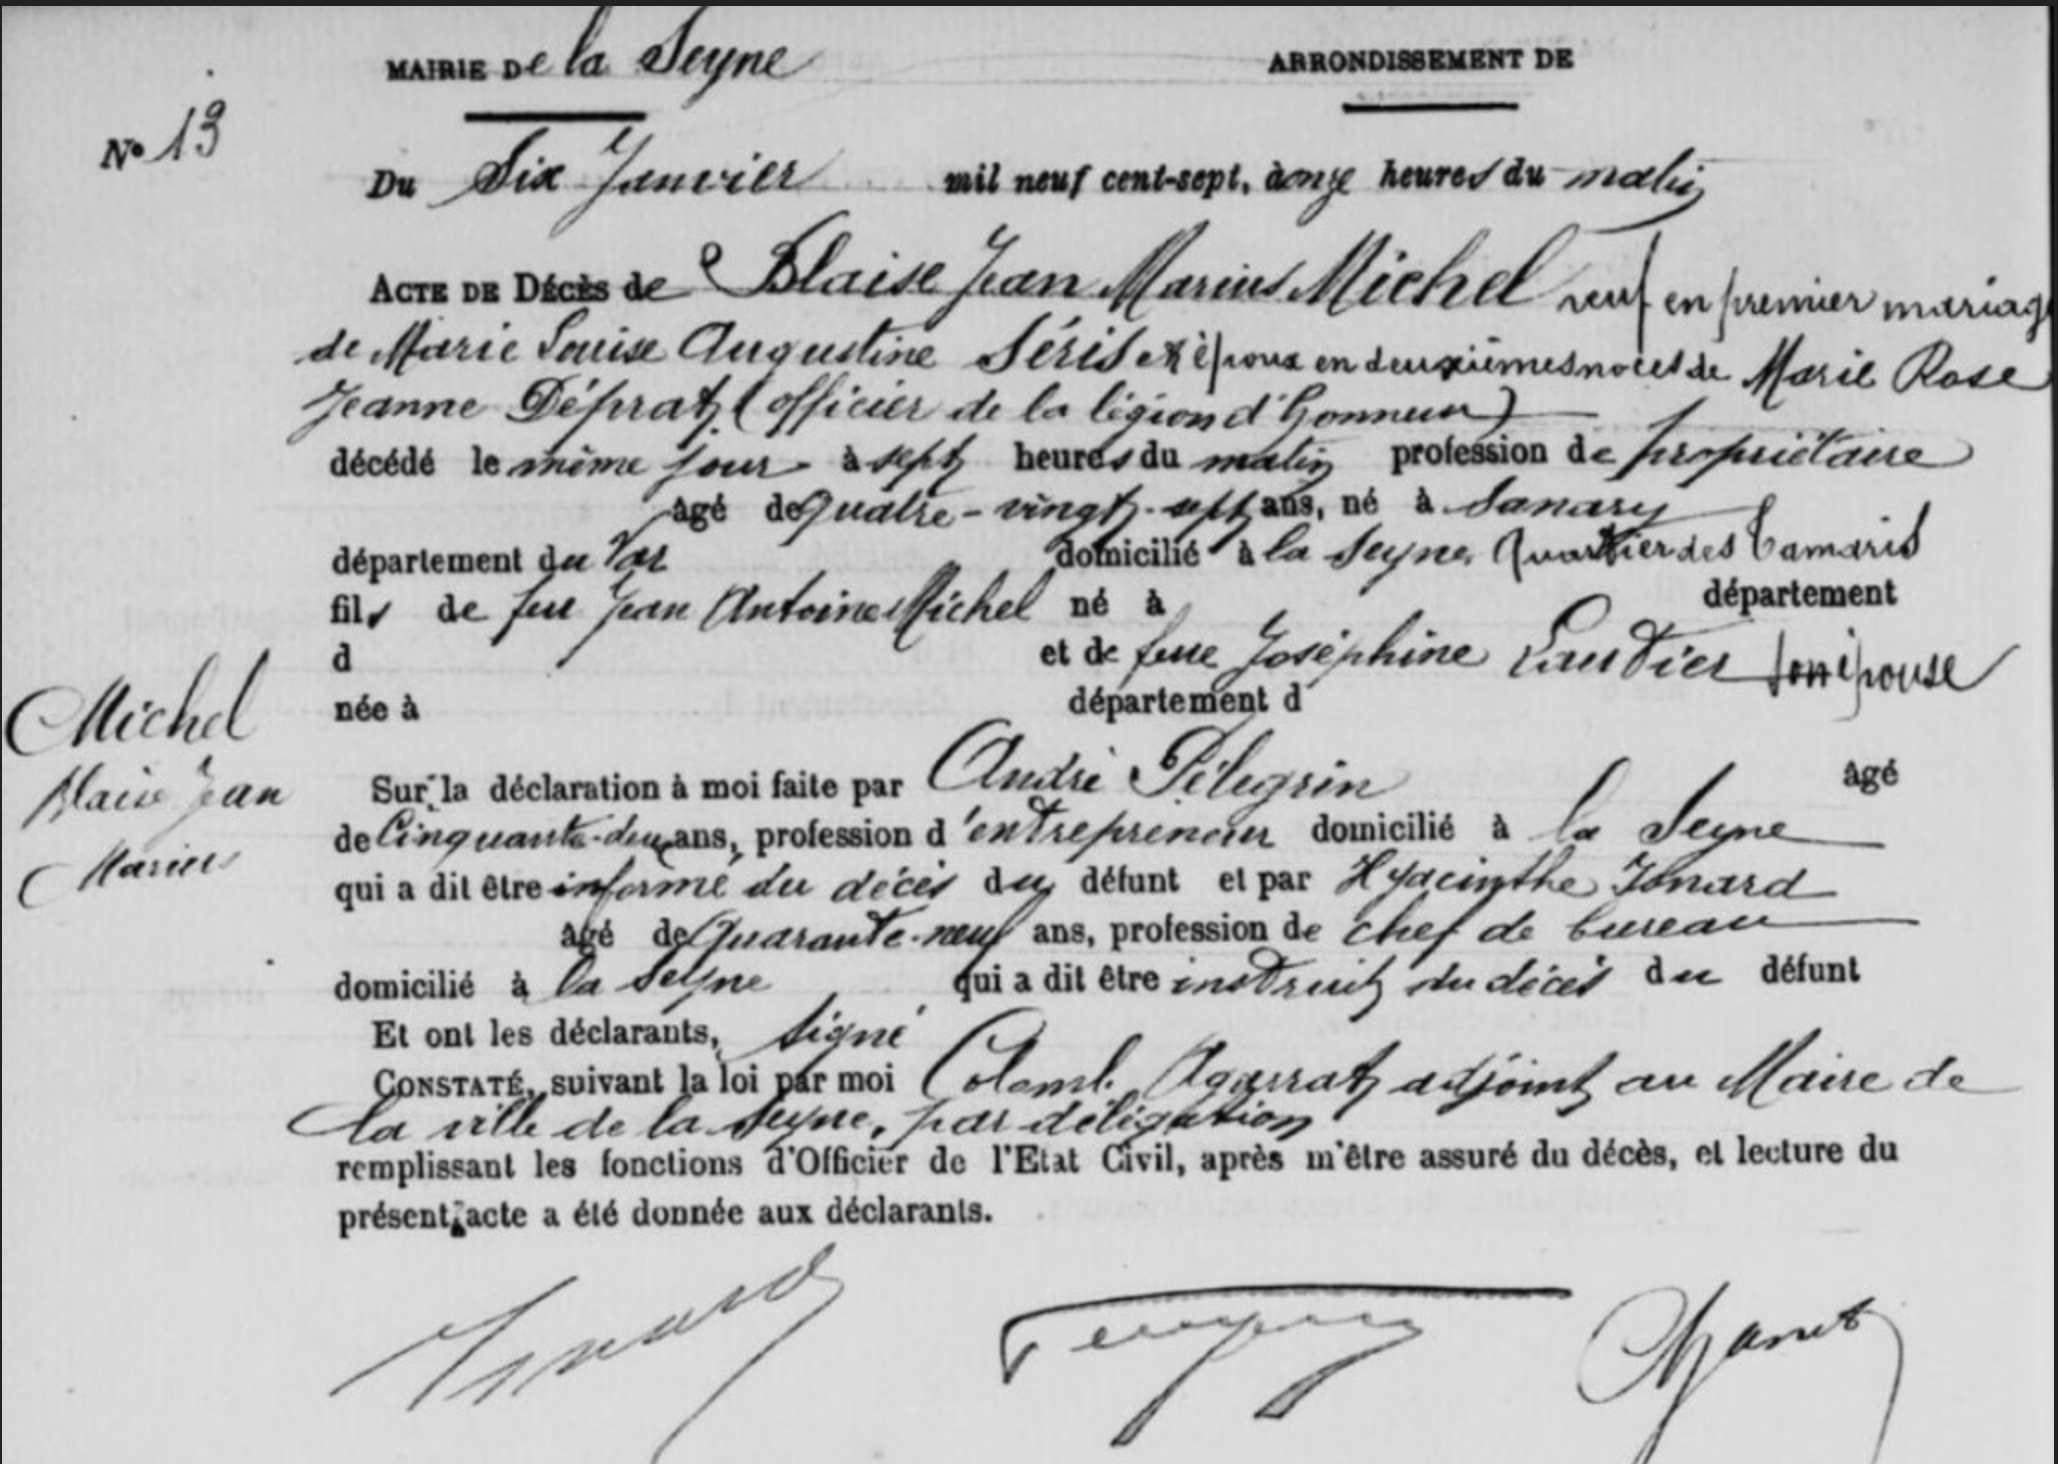 MAIRIE De la Seyne
ARRONDISSEMENT DE
N° 13
Du Six Janvier mil neuf cent-sept, à onze heures du matin
ACTE DE DÉCÈS de Blaise Jean Marius Michel veuf en premier mariage
de Marie Louise Augustine Séris et époux en deuxièmes noces de Marie Rose
Jeanne Déprat (officier de la légion d'honneur)
décédé le même jour à sept heures du matin profession de propriétaire
âgé de quatre-vingt-sept ans, né à Sanary
département du Var domicilié à la Seyne, quartier des Tamaris
fils de feu Jean Antoine Michel né à département
d et de feue Joséphine Lautier son épouse
née à département d
Michel
Blaise Jean
Marius
Sur la déclaration à moi faite par André Pélegrin âgé
de Cinquante-deux ans, profession d'entrepreneur domicilié à la Seyne
qui a dit être informé du décès du défunt et par Hyacinthe Isnard
âgé de quarante-neuf ans, profession de chef de bureau
domicilié à la Seyne qui a dit être instruit du décès du défunt
Et ont les déclarants, signé
CONSTATÉ, suivant la loi par moi Colomb Agarrat adjoint au Maire de
la ville de la Seyne, par délégation
remplissant les fonctions d'Officier de l'Etat Civil, après m'être assuré du décès, et lecture du
présent acte a été donnée aux déclarants.
Isnard